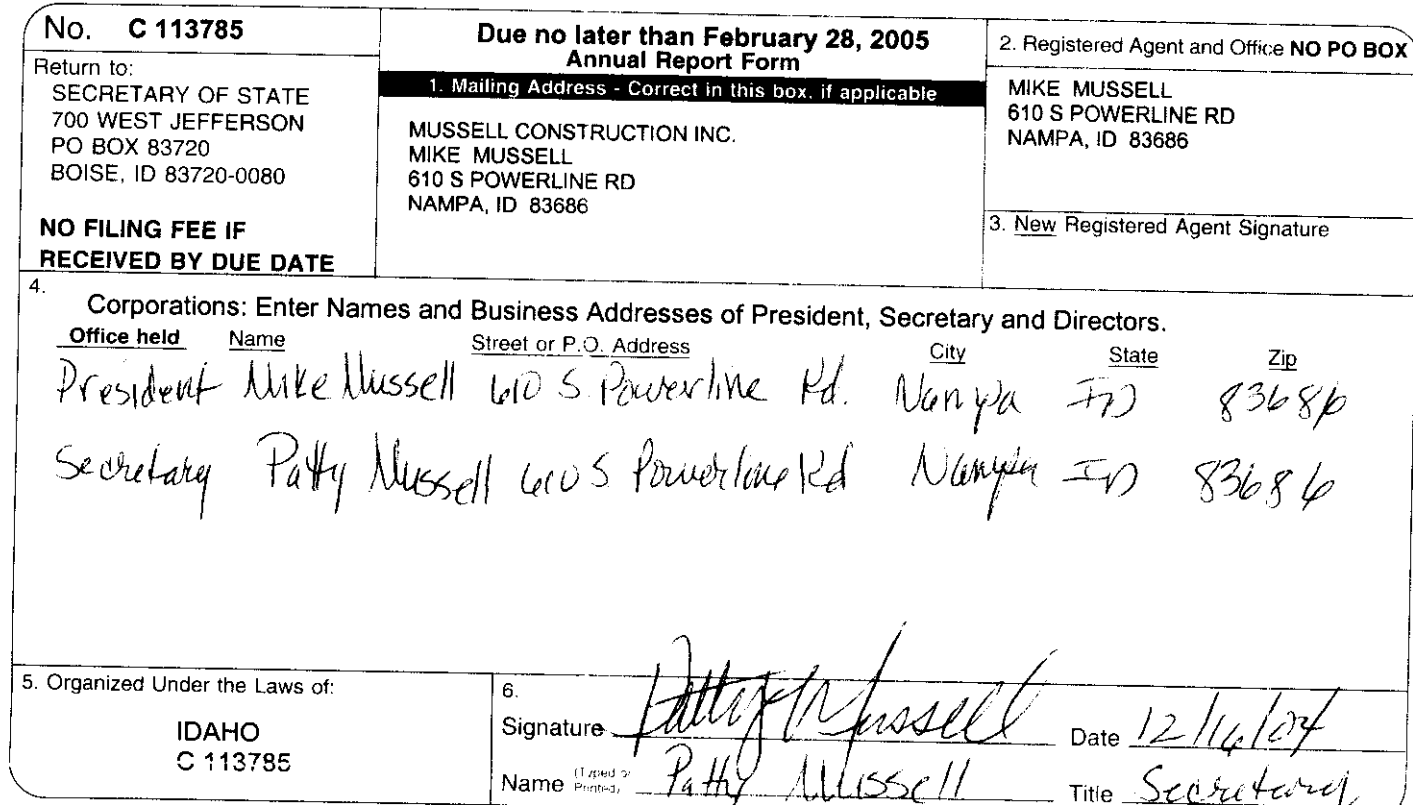 No. C 113785
Return to:
SECRETARY OF STATE
700 WEST JEFFERSON
PO BOX 83720
BOISE, ID 83720-0080
NO FILING FEE IF
RECEIVED BY DUE DATE
Due no later than February 28, 2005
Annual Report Form
1. Mailing Address - Correct in this box. if applicable
MUSSELL CONSTRUCTION INC.
MIKE MUSSELL
610 S POWERLINE RD
NAMPA, ID 83686
2. Registered Agent and Office NO PO BOX
MIKE MUSSELL
610 S POWERLINE RD
NAMPA, ID 83686
3. New Registered Agent Signature
4.
Corporations: Enter Names and Business Addresses of President, Secretary and Directors.
Office held Name Street or P.O. Address City State Zip
President Mike Mussell 610 S. Powerline Rd. Nampa ID 83686
Secretary Patty Mussell 610 S Powerline Rd Nampa ID 83686
5. Organized Under the Laws of:
IDAHO
C 113785
6.
Signature Patty Mussell Date 12/16/04
Name (Typed or Printed) Patty Mussell Title Secretary